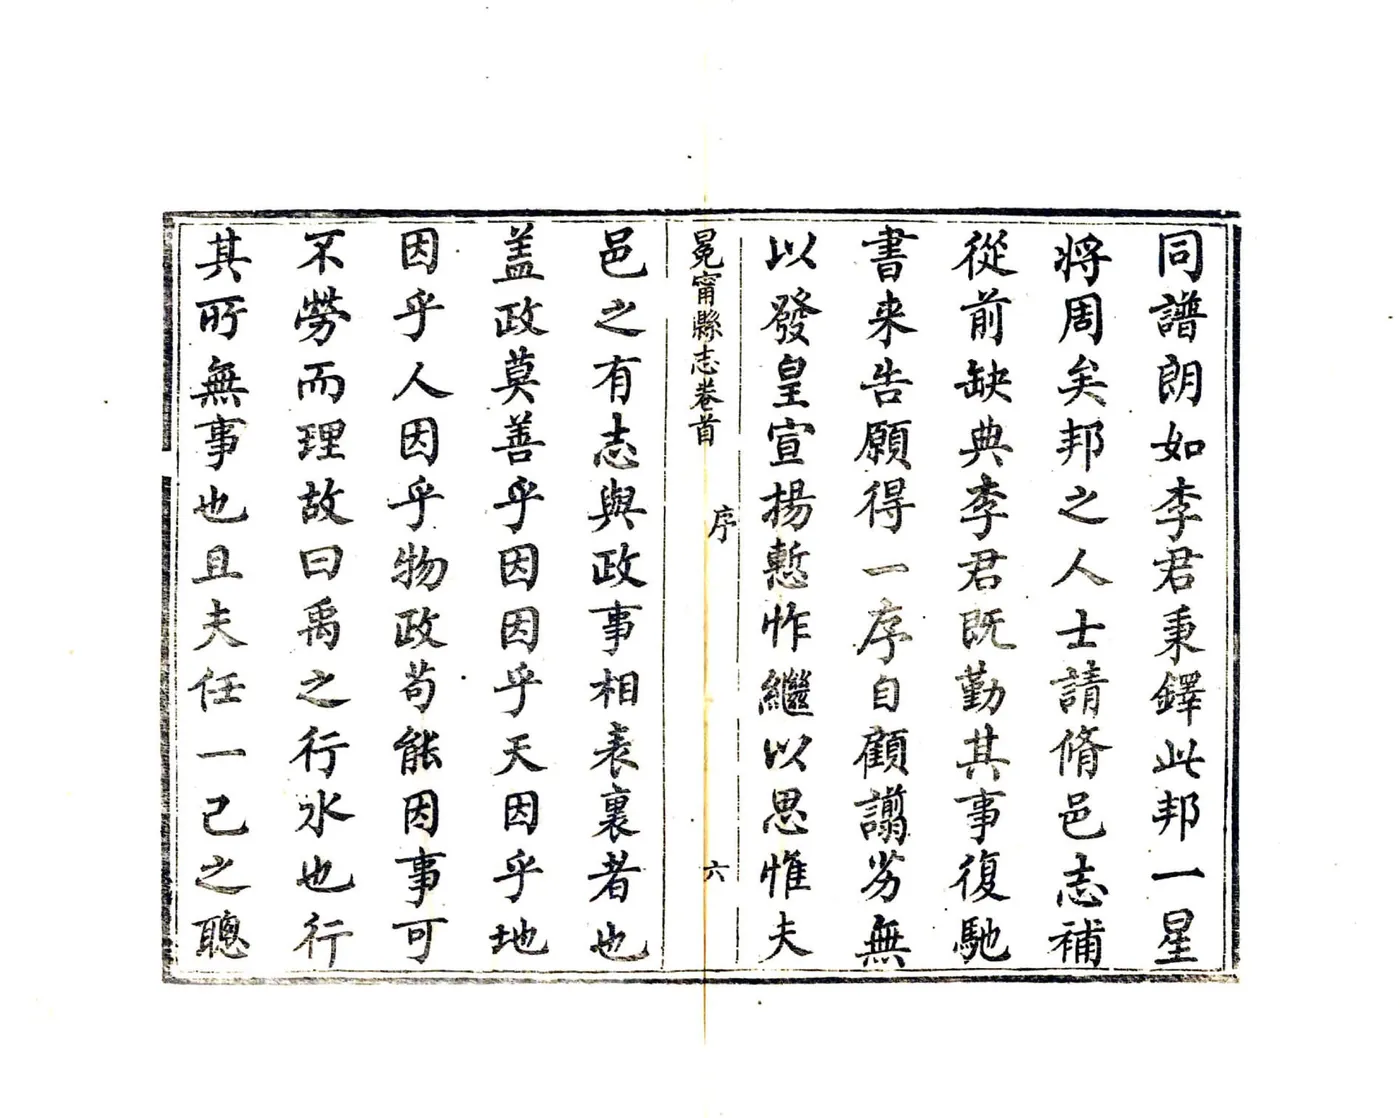 同譜朗如李君秉鐸此邦一星
將周矣邦之人士請脩邑志補
從前缺典李君既勤其事復馳
書来告願得一序自顧譾劣無
以發皇宣揚慙怍繼以思惟夫
冕甯縣志卷首
序
六
邑之有志與政事相表裏者也
盖政莫善乎因因乎天因乎地
因乎人因乎物政苟能因事可
不勞而理故曰禹之行水也行
其所無事也且夫任一己之聰